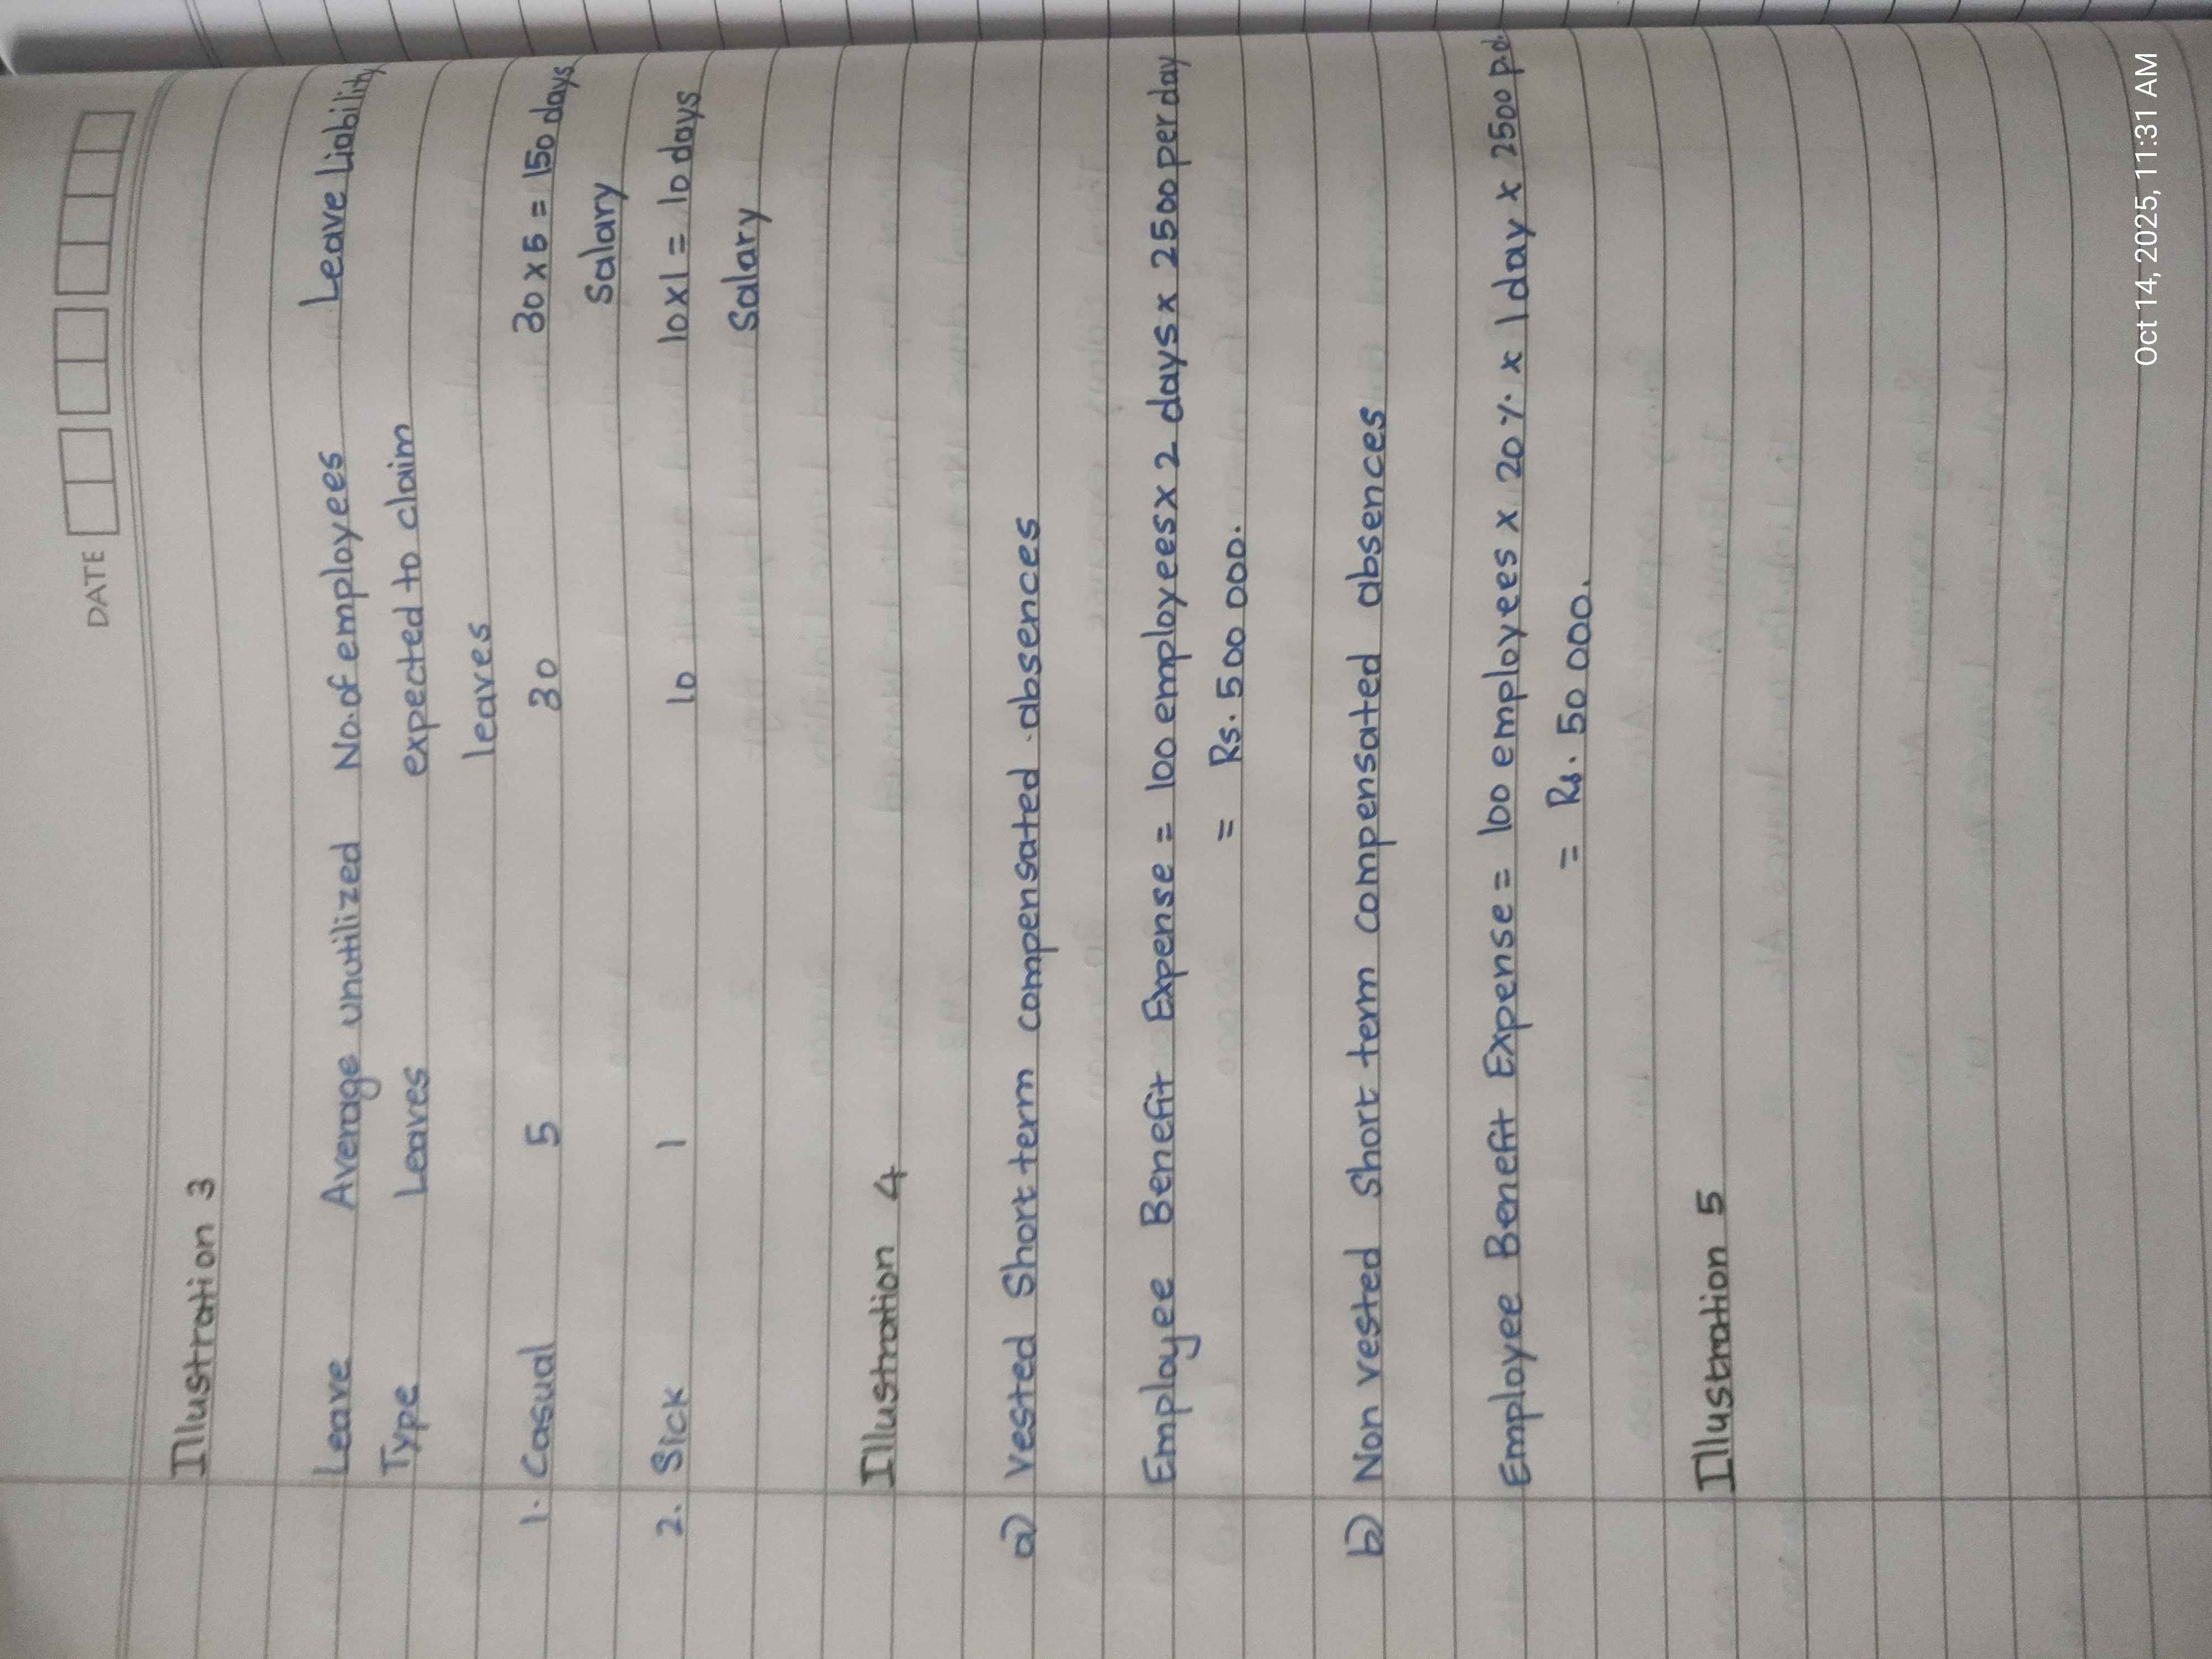 DATE
Illustration 3
Leave Average unutilized No. of employees Leave Liability
Type Leaves expected to claim
leaves
1. Casual 5 30 30 x 5 = 150 days
Salary
2. Sick 1 10 10 x 1 = 10 days
Salary
Illustration 4
a) Vested Short term compensated absences
Employee Benefit Expense = 100 employees x 2 days x 2500 per day
= Rs. 500 000.
b) Non vested Short term compensated absences
Employee Benefit Expense = 100 employees x 20 % x 1 day x 2500 p.d.
= Rs. 50 000.
Illustration 5
Oct 14, 2025, 11:31 AM